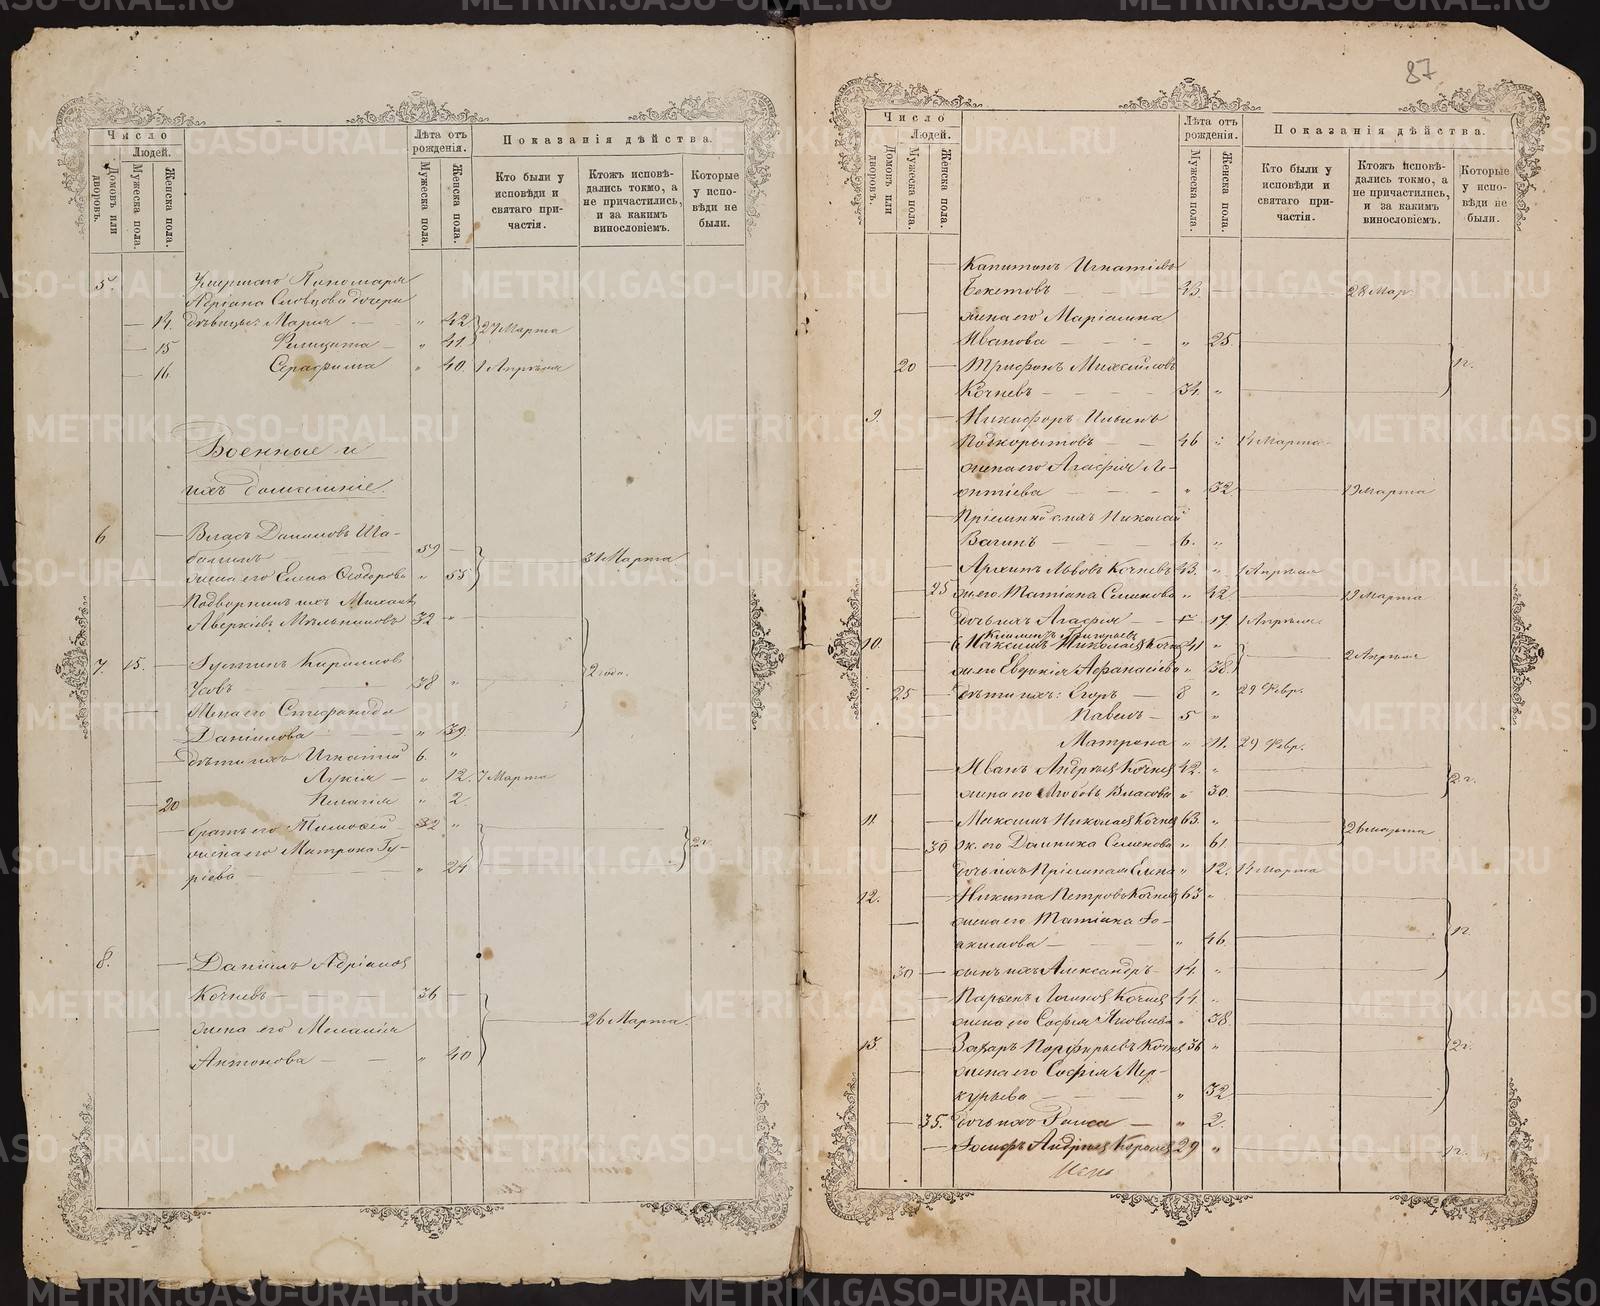 Число
Людей.
Домовъ или дворовъ.
Мужеска пола.
Женска пола.
Лѣта отъ рожденія.
Мужеска пола.
Женска пола.
Показанія дѣйства.
Кто были у исповѣди и святаго причастія.
Ктожъ исповѣдались токмо, а не причастились, и за какимъ винословіемъ.
Которые у исповѣди не были.
5. Умершаго Пономаря
Адріана Словцова дочери
14. дѣвицы: Марія — " 42 27 Марта
15 Фелицата — " 41.
16 Серафима " 40. 1 Апрѣля
Военные и
ихъ домашніе.
6 Власъ Даниловъ Ша-
балинъ 59 — 31 Марта
жена его Елена Ѳеодорова " 55
Михаилъ
Аверкіевъ Мельниковъ 32 "
7. 15. Кириловъ
Усовъ 38 " 2 года.
Жена его Стефанида
Даніилова " 39.
дѣти ихъ Игнатій 6. "
Лукія — " 12. 7 Марта
20 Пелагія " 2.
братъ его Тимоѳей 32 " 2 г.
жена его Матрона Гу-
ріева — " 24
8. Даніилъ Адріановъ
Кочневъ 36 —
жена его Меланія 26 Марта.
Антонова — " 40
87
Число
Людей.
Домовъ или дворовъ.
Мужеска пола.
Женска пола.
Лѣта отъ рожденія.
Мужеска пола.
Женска пола.
Показанія дѣйства.
Кто были у исповѣди и святаго причастія.
Ктожъ исповѣдались токмо, а не причастились, и за какимъ винословіемъ.
Которые у исповѣди не были.
Капитонъ Игнатіевъ
Бекетовъ — 43. 28 Мар.
жена его Маріамна
Иванова — " 25.
20 Трифонъ Михайловъ 1 г.
Кочневъ — 34. "
9. Никифоръ Ильинъ
Подкорытовъ — 46 " 14 Марта
жена его Агафія Ле-
онтіева — " 32 19 Марта
Пріемный сынъ Николай
Вагинъ — 6. "
Архипъ Львовъ Кочневъ 43. " 1 Апрѣля
25 ж. его Татіана Семенова " 42 19 Марта
дочь ихъ Агафія — " 17 1 Апрѣля
Григорьевъ
10. Кочн 41 "
ж. его Евдокія Афанасіева " 38. 2 Апрѣля
25 дѣти ихъ: Егоръ — 8 " 29 Февр.
Павелъ — 5 "
Матрона " 11. 29 Февр.
Иванъ Андреевъ Кочнев 42. "
жена его Любовь Власова " 30. 2 г.
11. Максимъ Николаевъ Кочнев 63. "
26 марта
30 ж. его Домника Семенова " 61.
дочь ихъ Пріемная Елена " 12. 14 Марта
12. Никита Петровъ Кочнев 63 "
жена его Татіана Іо-
акимова — " 46. 1 г.
30 сынъ ихъ Александръ — 14. "
Парѳенъ Логиновъ Кочнев 44. "
жена его Софія Яковлева " 38.
13. Захаръ Порфирьевъ Кочнев 36 " 2 г.
жена его Софія Мер-
курьева — " 32
35. дочь ихъ Раиса — " 2.
Іосифъ 29 " 1 г.
METRIKI.GASO-URAL.RU